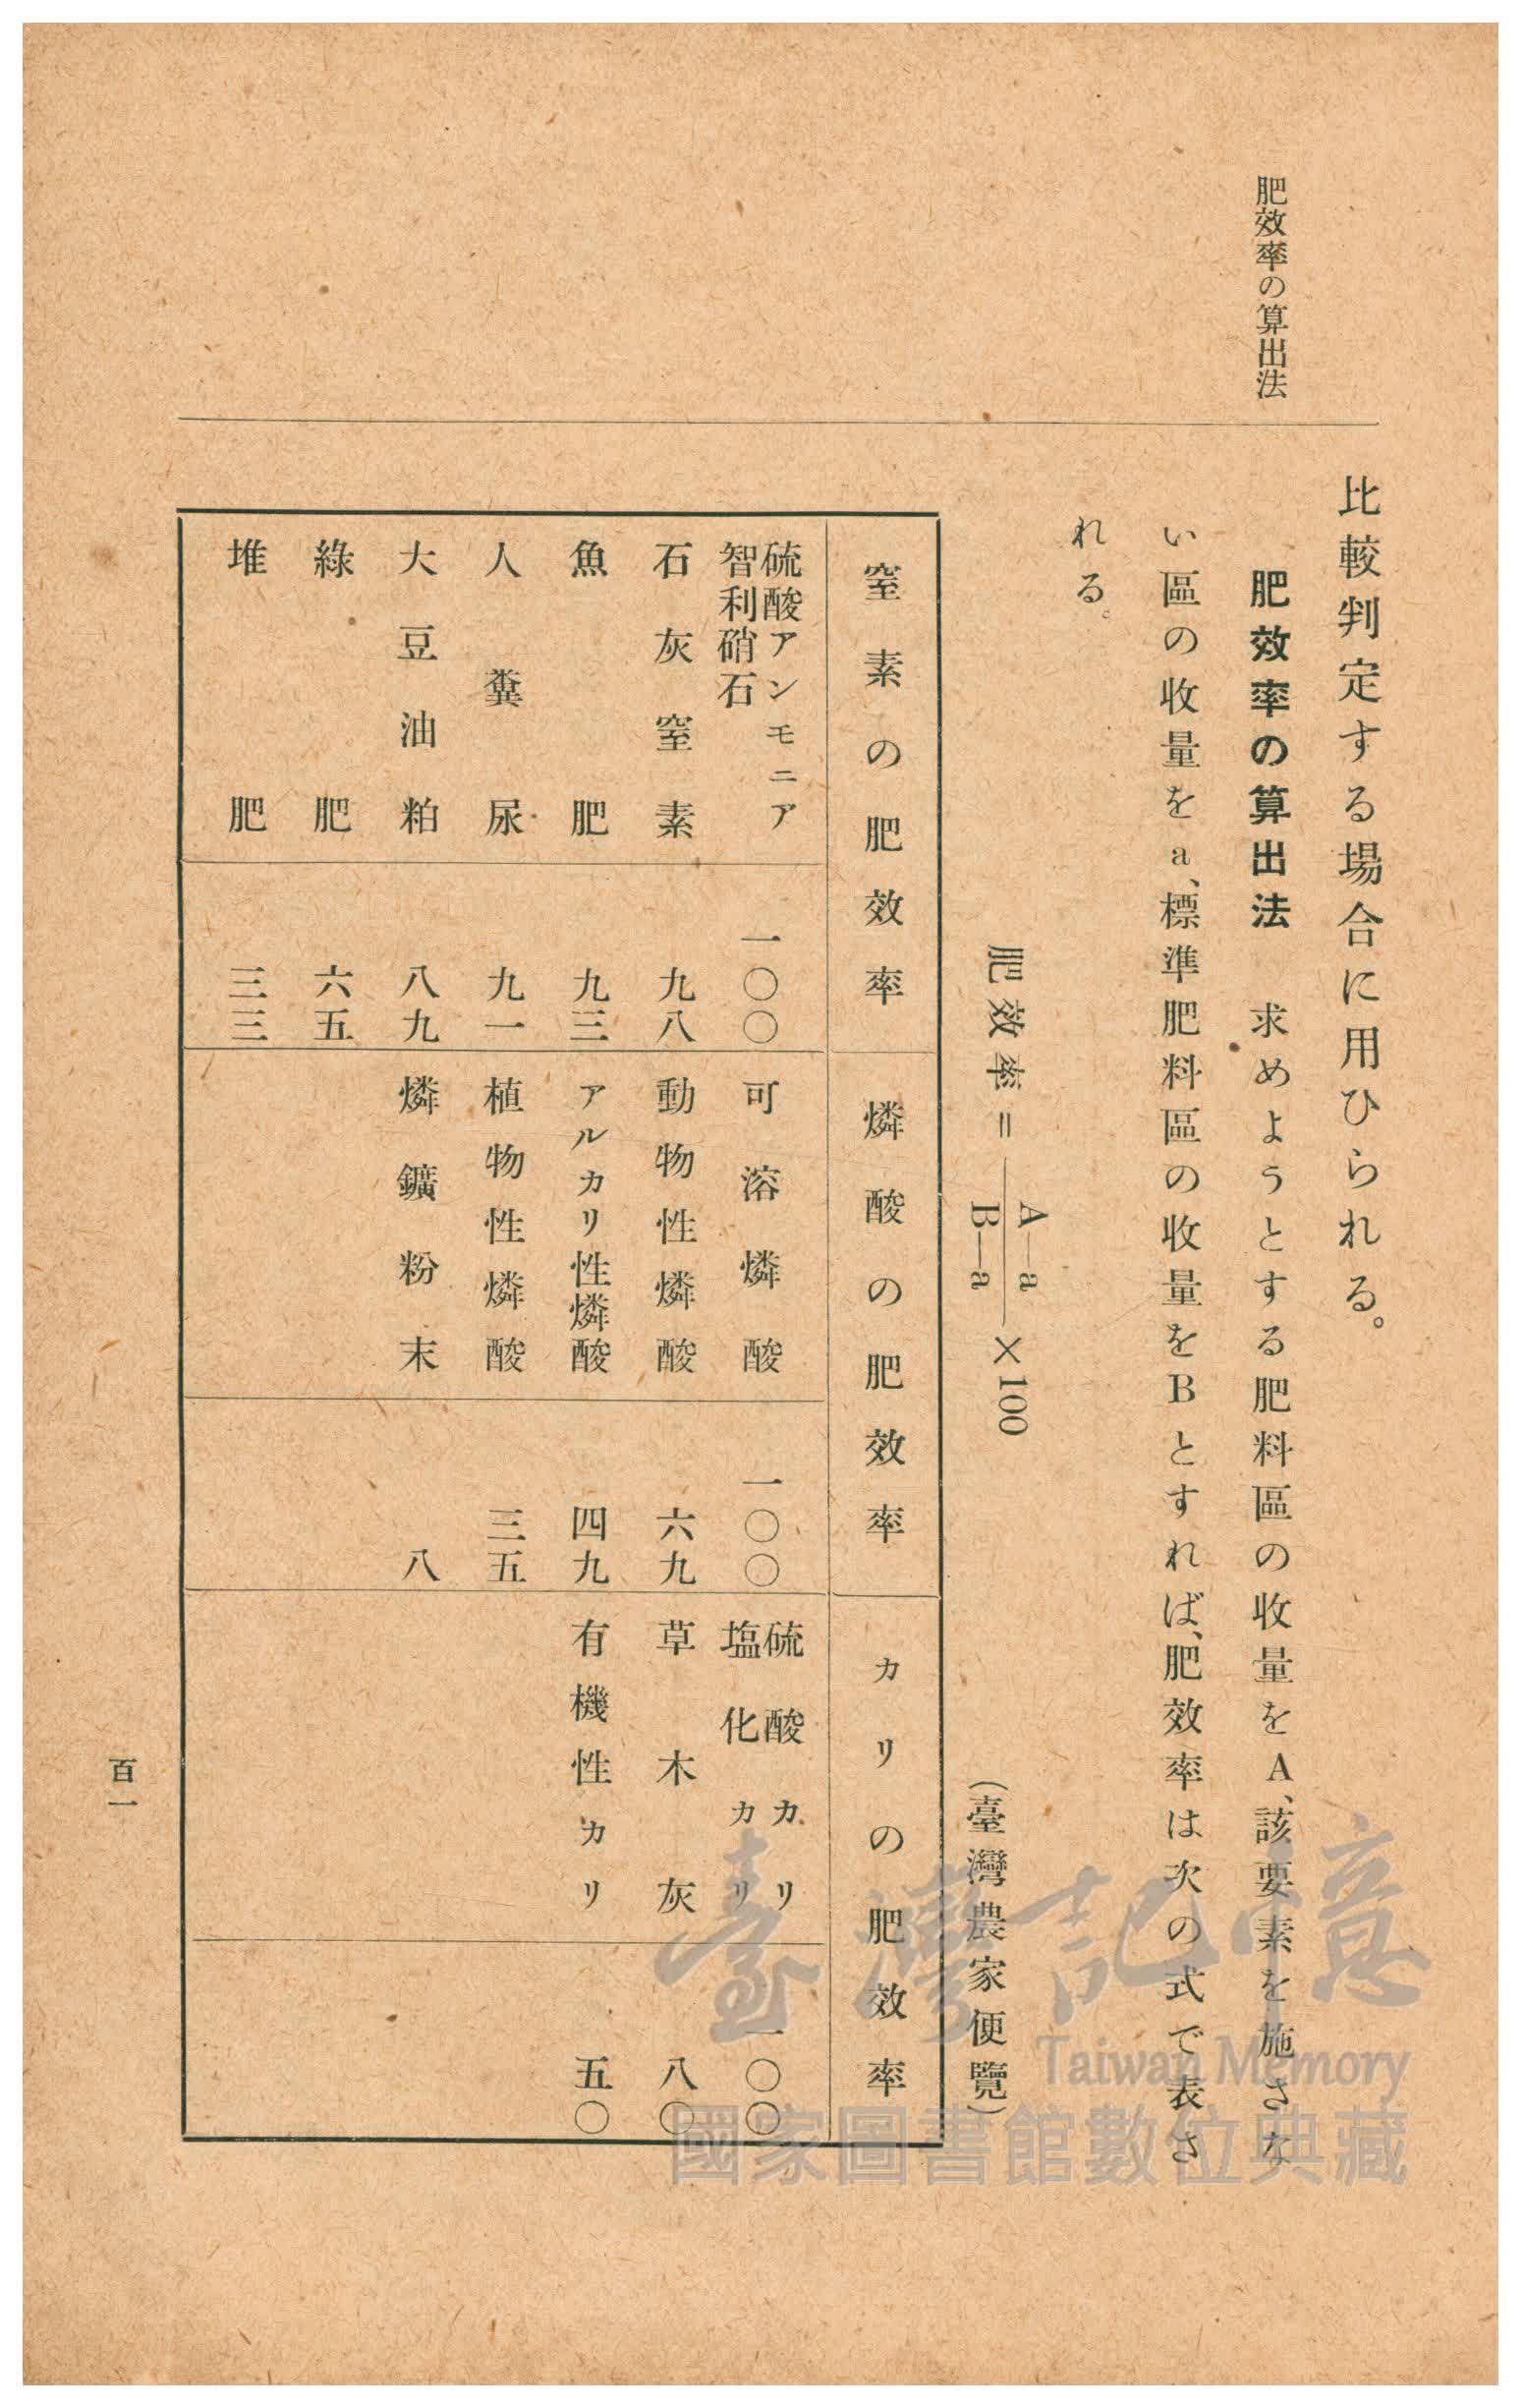 肥效率の算出法
比較判定する場合に用ひられる。
肥效率の算出法　求めようとする肥料區の收量をA、該要素を施さな
い區の收量をa、標準肥料區の收量をBとすれば、肥效率は次の式で表さ
れる。
肥效率＝A—a/B—a×100
（臺灣農家便覽）
窒素の肥效率
燐酸の肥效率
カリの肥效率
硫酸アンモニア
智利硝石
一〇〇
可溶燐酸
一〇〇
硫酸カリ
塩化カリ
一〇〇
石灰窒素
九八
動物性燐酸
六九
草木灰
八〇
魚肥
九三
アルカリ性燐酸
四九
有機性カリ
五〇
人糞尿
九一
植物性燐酸
三五
大豆油粕
八九
燐鑛粉末
八
綠肥
六五
堆肥
三三
百一
臺灣記憶
Taiwan Memory
國家圖書館數位典藏